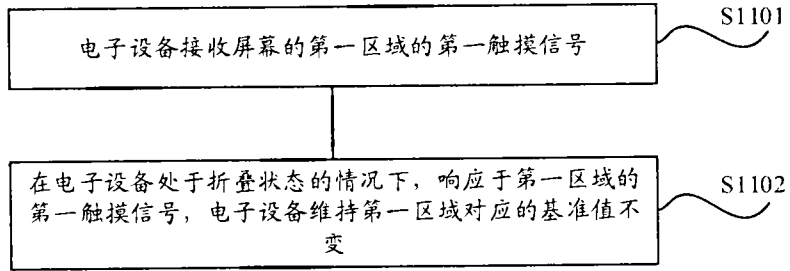 S1101
电子设备接收屏幕的第一区域的第一触摸信号
S1102
在电子设备处于折叠状态的情况下，响应于第一区域的
第一触摸信号，电子设备维持第一区域对应的基准值不
变